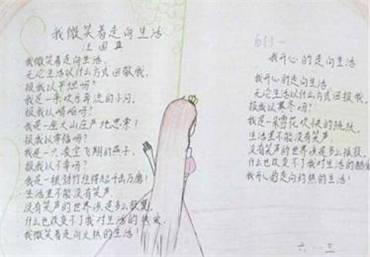 我微笑着走向生活
汪国真
我微笑着走向生活,
无论生活以什么方式回敬我。
报我以平坦吗?
我是一条欢乐奔流的小河。
报我以崎岖吗?
我是一座大山庄严地思索!
报我以幸福吗?
我是一只凌空飞翔的燕子。
报我以不幸吗?
我是一根劲竹经得起千击万磨!
生活里不能没有笑声,
没有笑声的世界该是多么寂寞。
什么也改变不了我对生活的热爱,
我微笑着走向火热的生活!
我开心的走向生活
我开心的走向生活
无论生活以什么方式回报我。
报我以寒冬吗?
生活里不能没有笑声
没有笑声的世界该是多么
什么也改变不了我对生活的
我开心的走向灼热的生活!